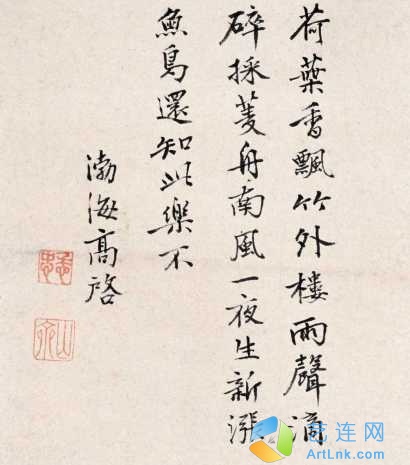 荷葉香飄竹外樓雨聲滴
碎採菱舟南風一夜生新漲
魚鳥還知此樂不
渤海高啓
藝连网
ArtLnk.com